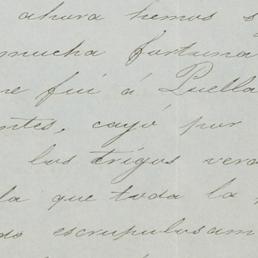 ahora hemos
mucha fortuna
fui á Puella
ntes, cayó por
los trigos verd
la que toda la
do escrupulosam